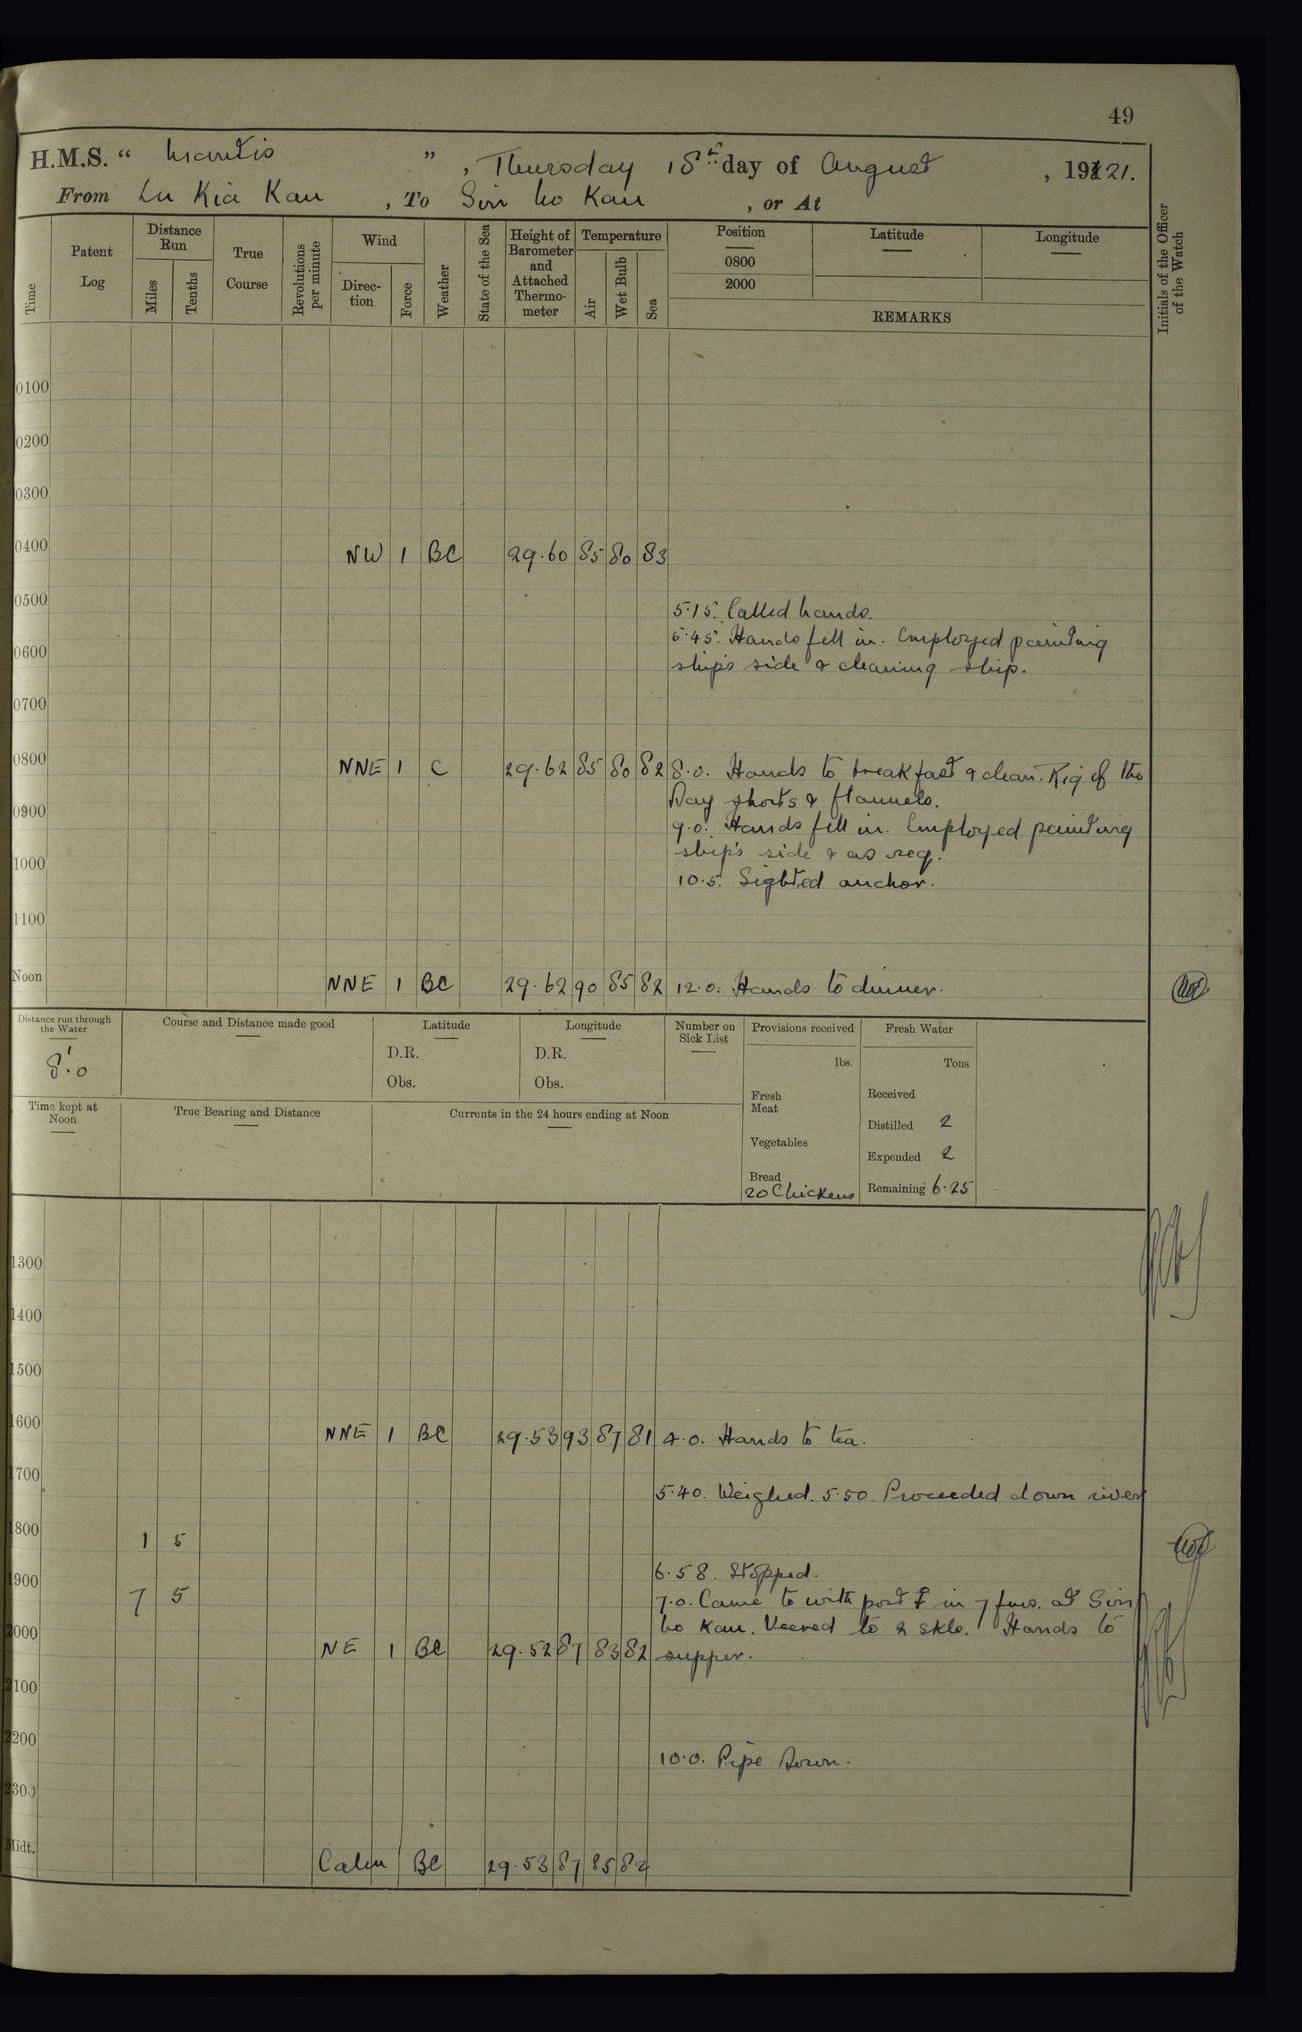 49
H.M.S. “ Mantis ” , Thursday 18th day of August , 1921.
From Lu Kia Kau , To Sin Ho Kau , or At
Time
Patent Log
Distance Run
Miles
Tenths
True Course
Revolutions per minute
Wind
Direc-tion
Force
Weather
State of the Sea
Height of Barometer and Attached Thermo-meter
Temperature
Air
Wet Bulb
Sea
Position Latitude Longitude
0800
2000
REMARKS
Initials of the Officer of the Watch
0100
0200
0300
0400 NW 1 BC 29.60 85 80 83
0500 5.15. Called hands.
5.45. Hands fell in. Employed painting
0600 ship's side & cleaning ship.
0700
0800 NNE 1 C 29.62 85 80 82 8.0. Hands to breakfast & clean. Rig of the
Day shorts & flannels.
0900 9.0. Hands fell in. Employed painting
ship's side & as req.
1000 10.5. Sighted anchor.
1100
Noon NNE 1 BC 29.62 90 85 82 12.0. Hands to dinner.
Distance run through the Water
8'.0
Course and Distance made good
Latitude
D.R.
Obs.
Longitude
D.R.
Obs.
Number on Sick List
Provisions received
lbs.
Fresh Meat
Vegetables
Bread
20 Chickens
Fresh Water
Tons
Received
Distilled 2
Expended 2
Remaining 6.25
Time kept at Noon
True Bearing and Distance
Currents in the 24 hours ending at Noon
1300
1400
1500
1600 NNE 1 BC 29.53 93 87 81 4.0. Hands to tea.
1700 5.40. Weighed. 5.50. Proceeded down river
1800 1 5
6.58. Stopped.
1900 7 5 7.0. Came to with port ⚓ in 7 fms. at Sin
Ho Kau. Veered to 2 skls. Hands to
2000 NE 1 BC 29.52 87 83 82 supper.
2100
2200 10.0. Pipe Down.
2300
Midt. Calm BC 29.53 87 85 82